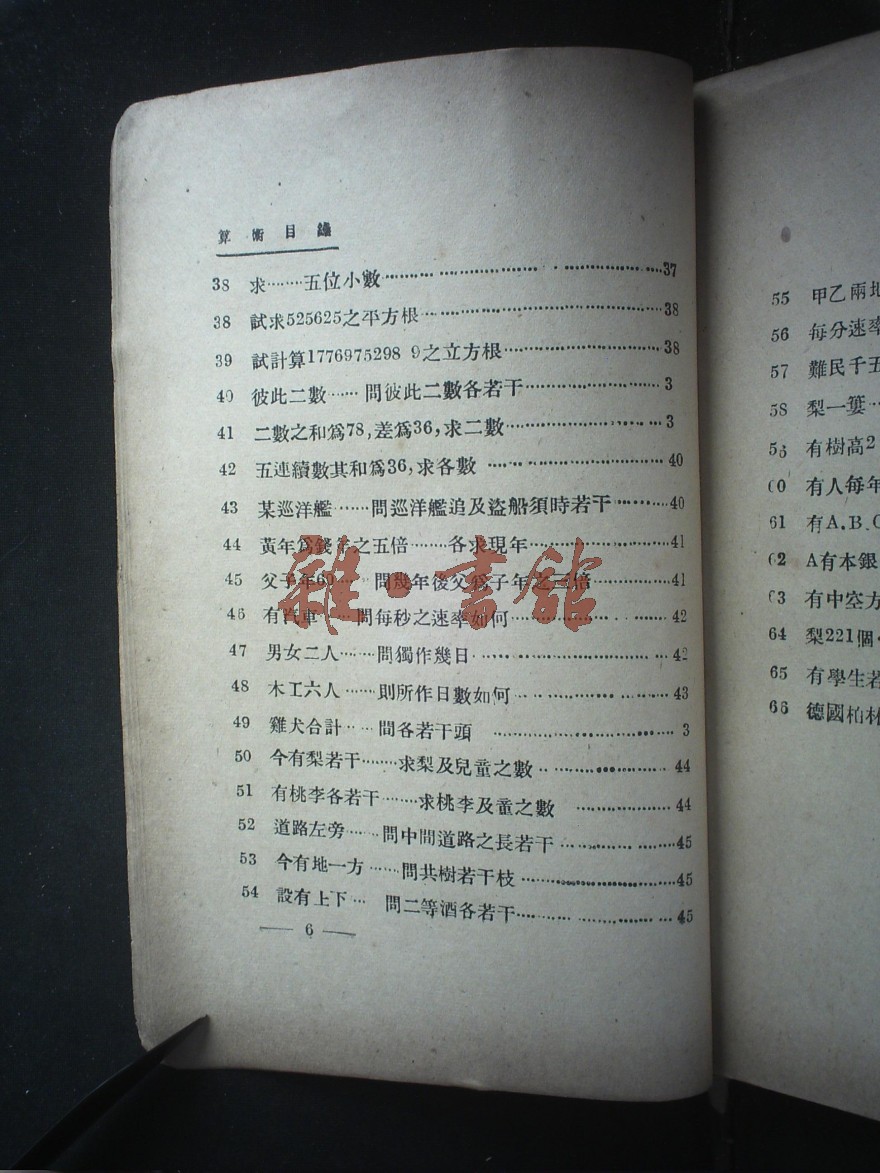 算術目錄
38 求········五位小數··················37
38 試求525625之平方根··················38
39 試計算1776975298 9之立方根··················38
40 彼此二數······問彼此二數各若干··················3
41 二數之和爲78,差爲36,求二數··················3
42 五連續數其和爲36,求各數··················40
43 某巡洋艦······問巡洋艦追及盜船須時若干··········40
44 黃年爲錢年之五倍·······各求現年··················41
45 父子年60···問幾年後父爲子年之三倍··········41
46 有汽車···問每秒之速率如何··················42
47 男女二人·······問獨作幾日··················42
48 木工六人······則所作日數如何··················43
49 雞犬合計·····間各若干頭··················3
50 今有梨若干·······求梨及兒童之數··················44
51 有桃李各若干·······求桃李及童之數··················44
52 道路左旁······問中間道路之長若干··················45
53 今有地一方······問共樹若干枝··················45
54 設有上下··· 問二等酒各若干··················45
— 6 —
雜·書舘
55 甲乙兩地
56 每分速率
57 難民千五
58 梨一簍··
5 有樹高2
0 有人每年
61 有A.B.C
2 A有本銀
3 有中空方
64 梨221個·
65 有學生若
66 德國柏林